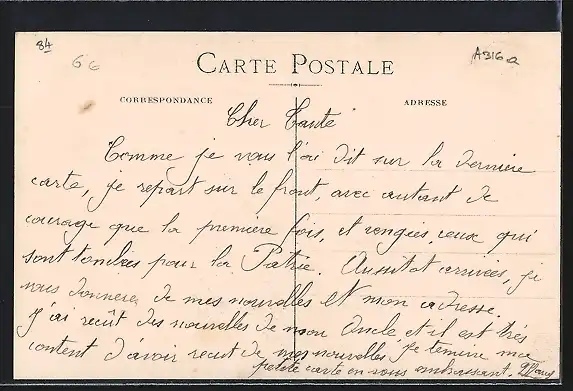 84
66
A316a
CARTE POSTALE
CORRESPONDANCE
ADRESSE
Cher Tante
Comme je vous l'ai dit sur la dernière
carte, je repart sur le front, avec autant de
courage que la première fois, et vengées, ceux qui
sont tombées pour la Patrie. Aussitot arrivées, je
vous donnerer de mes nouvelles et mon adresse.
j'ai recût des nouvelles de mon Oncle et il est très
content d'avoir recut de mes nouvelles, je termine ma
petite carte en vous embrassant.